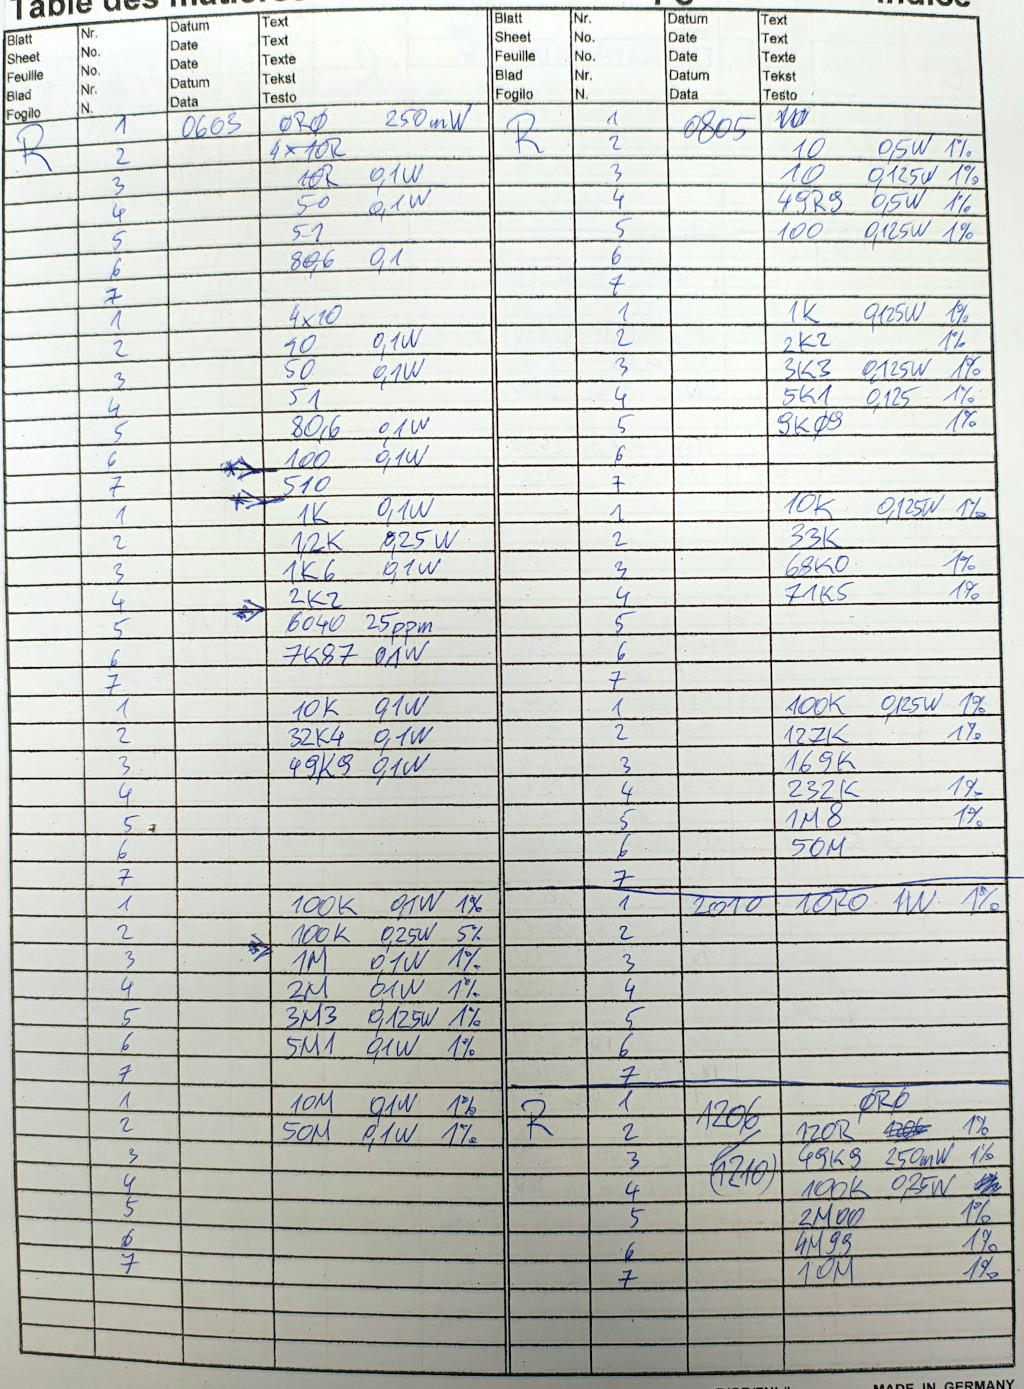 Blatt Nr. Datum Text
Sheet No. Date Text
Feuille No. Date Texte
Blad Nr. Datum Tekst
Fogilo N. Data Testo
R 1 0603 0R0 250mW
2 4×10R
3 10R 0,1W
4 50 0,1W
5 51
6 80,6 0,1
7
1 4×10
2 40 0,1W
3 50 0,1W
4 51
5 80,6 0,1W
6 100 0,1W
7 510
1 1K 0,1W
2 1,2K 0,25W
3 1K6 0,1W
4 2K2
5 6040 25ppm
6 7K87 0,1W
7
1 10K 0,1W
2 32K4 0,1W
3 49K9 0,1W
4
5
6
7
1 100K 0,1W 1%
2 100K 0,25W 5%
3 1M 0,1W 1%
4 2M 0,1W 1%
5 3M3 0,125W 1%
6 5M1 0,1W 1%
7
1 10M 0,1W 1%
2 50M 0,1W 1%
3
4
5
6
7
Blatt Nr. Datum Text
Sheet No. Date Text
Feuille No. Date Texte
Blad Nr. Datum Tekst
Fogilo N. Data Testo
R 1 0805
2 10 0,5W 1%
3 10 0,125W 1%
4 49R9 0,5W 1%
5 100 0,125W 1%
6
7
1 1K 0,125W 1%
2 2K2 1%
3 3K3 0,125W 1%
4 5K1 0,125 1%
5 9K09 1%
6
7
1 10K 0,125W 1%
2 33K
3 68K0 1%
4 71K5 1%
5
6
7
1 100K 0,125W 1%
2 127K 1%
3 169K
4 232K 1%
5 1M8 1%
6 50M
7
1 2010 10R0 1W 1%
2
3
4
5
6
7
R 1 1206 0R0
2 120R 1%
3 (1210) 49K9 250mW 1%
4 100K 0,25W
5 2M00 1%
6 4M99 1%
7 10M 1%
MADE IN GERMANY